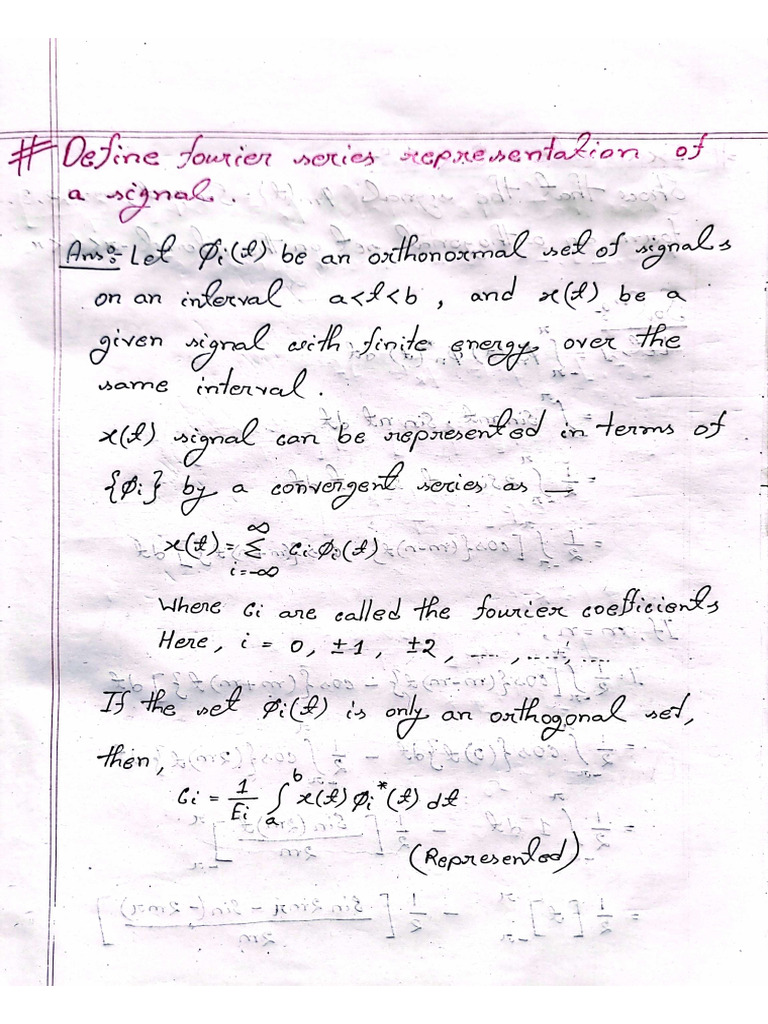 # Define fourier series representation of
a signal.
Ans:- Let Øi(t) be an orthonormal set of signals
on an interval a<t<b, and x(t) be a
given signal with finite energy over the
same interval.
x(t) signal can be represented in terms of
{Øi} by a convergent series as —
x(t) = ∞Σi=-∞ Ci Øi(t)
Where Ci are called the fourier coefficients
Here, i = 0, ±1, ±2, ...., ....., ....
If the set Øi(t) is only an orthogonal set,
then,
Ci = 1/Ei ∫ₐᵇ x(t) Øi*(t) dt
(Represented)